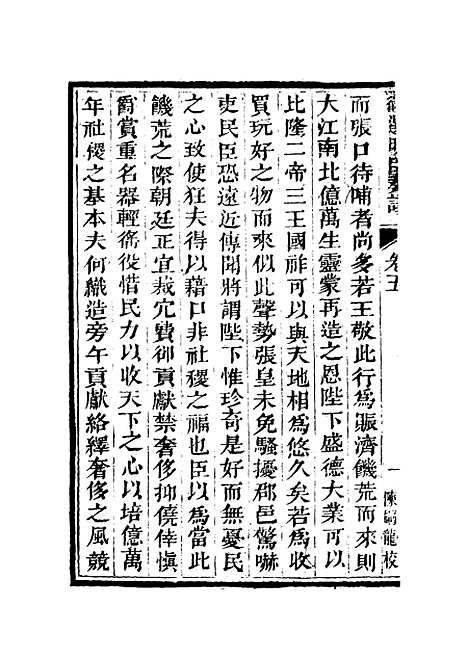 卷五
一
陳嗣龍校
而張口待哺者尚多若王敬此行爲賑濟饑荒而來則
大江南北億萬生靈蒙再造之恩陛下盛德大業可以
比隆二帝三王國祚可以與天地相爲悠久矣若爲收
買玩好之物而來似此聲勢張皇未免騷擾郡邑驚嚇
吏民臣恐遠近傳聞將謂陛下惟珍奇是好而無憂民
之心致使狂夫得以藉口非社稷之福也臣以爲當此
饑荒之際朝廷正宜裁冗費卻貢獻禁奢侈抑僥倖愼
爵賞重名器輕徭役惜民力以收天下之心以培億萬
年社稷之基本夫何織造旁午貢獻絡繹奢侈之風競